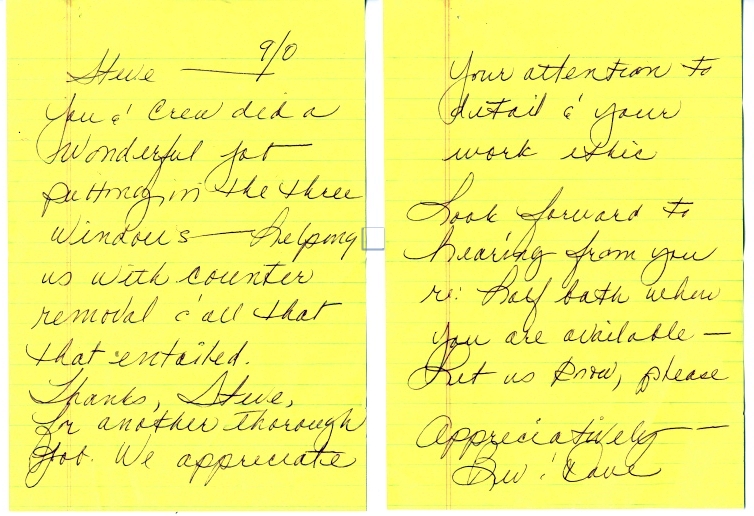 9/0
Steve —
You & Crew did a
Wonderful job
putting in the three
windows — helping
us with counter
removal & all that
that entailed.
Thanks, Steve,
for another thorough
job. We appreciate
Your attention to
detail & your
work ethic
Look forward to
hearing from you
re: half bath when
you are available —
Let us know, please
Appreciatively —
Bev & Dave